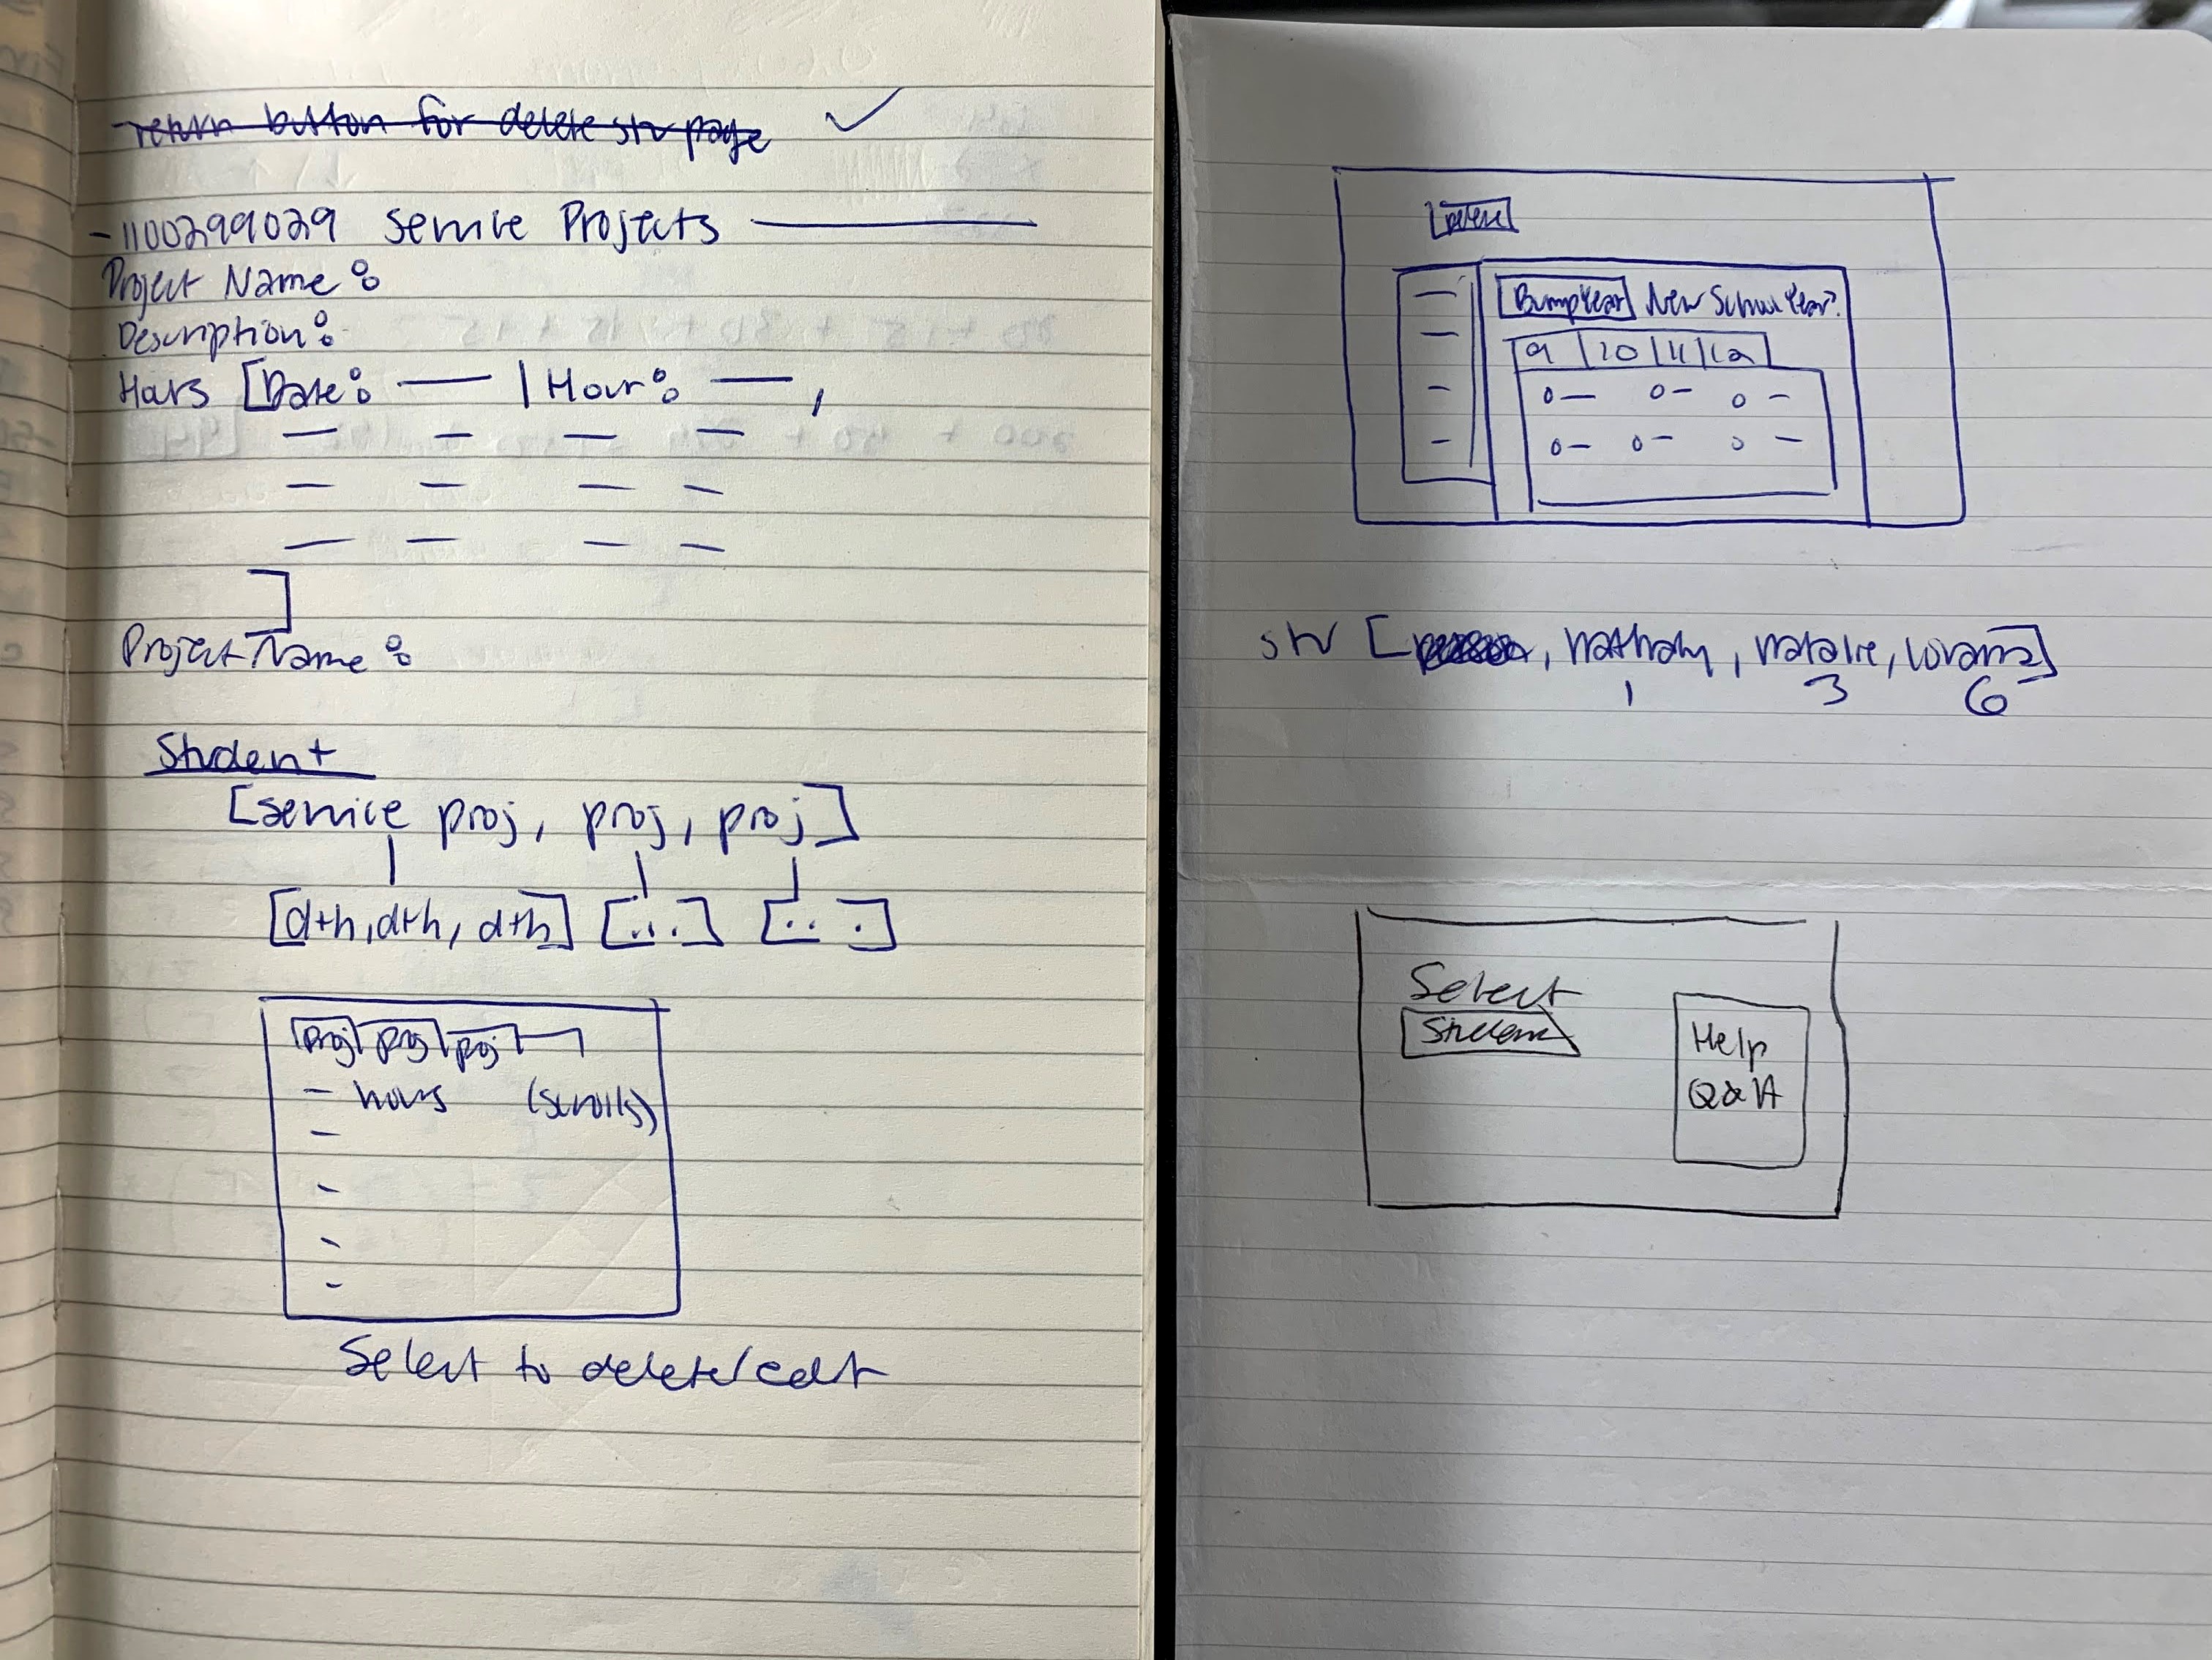 return button for delete stu page ✓
- 1100299029 Service Projects
Project Name:
Description:
Hours [Date: — | Hour: — ,
]
Project Name:
Student
[service proj, proj, proj]
[d+h, d+h, d+h] [...] [...]
proj proj proj
- hours (scrolls)
Select to delete/edit
Bump Year New School Year?
9 10 11 12
stu [, nathaly, natalie, lorama]
1 3 6
Select
Student
Help
Q&A